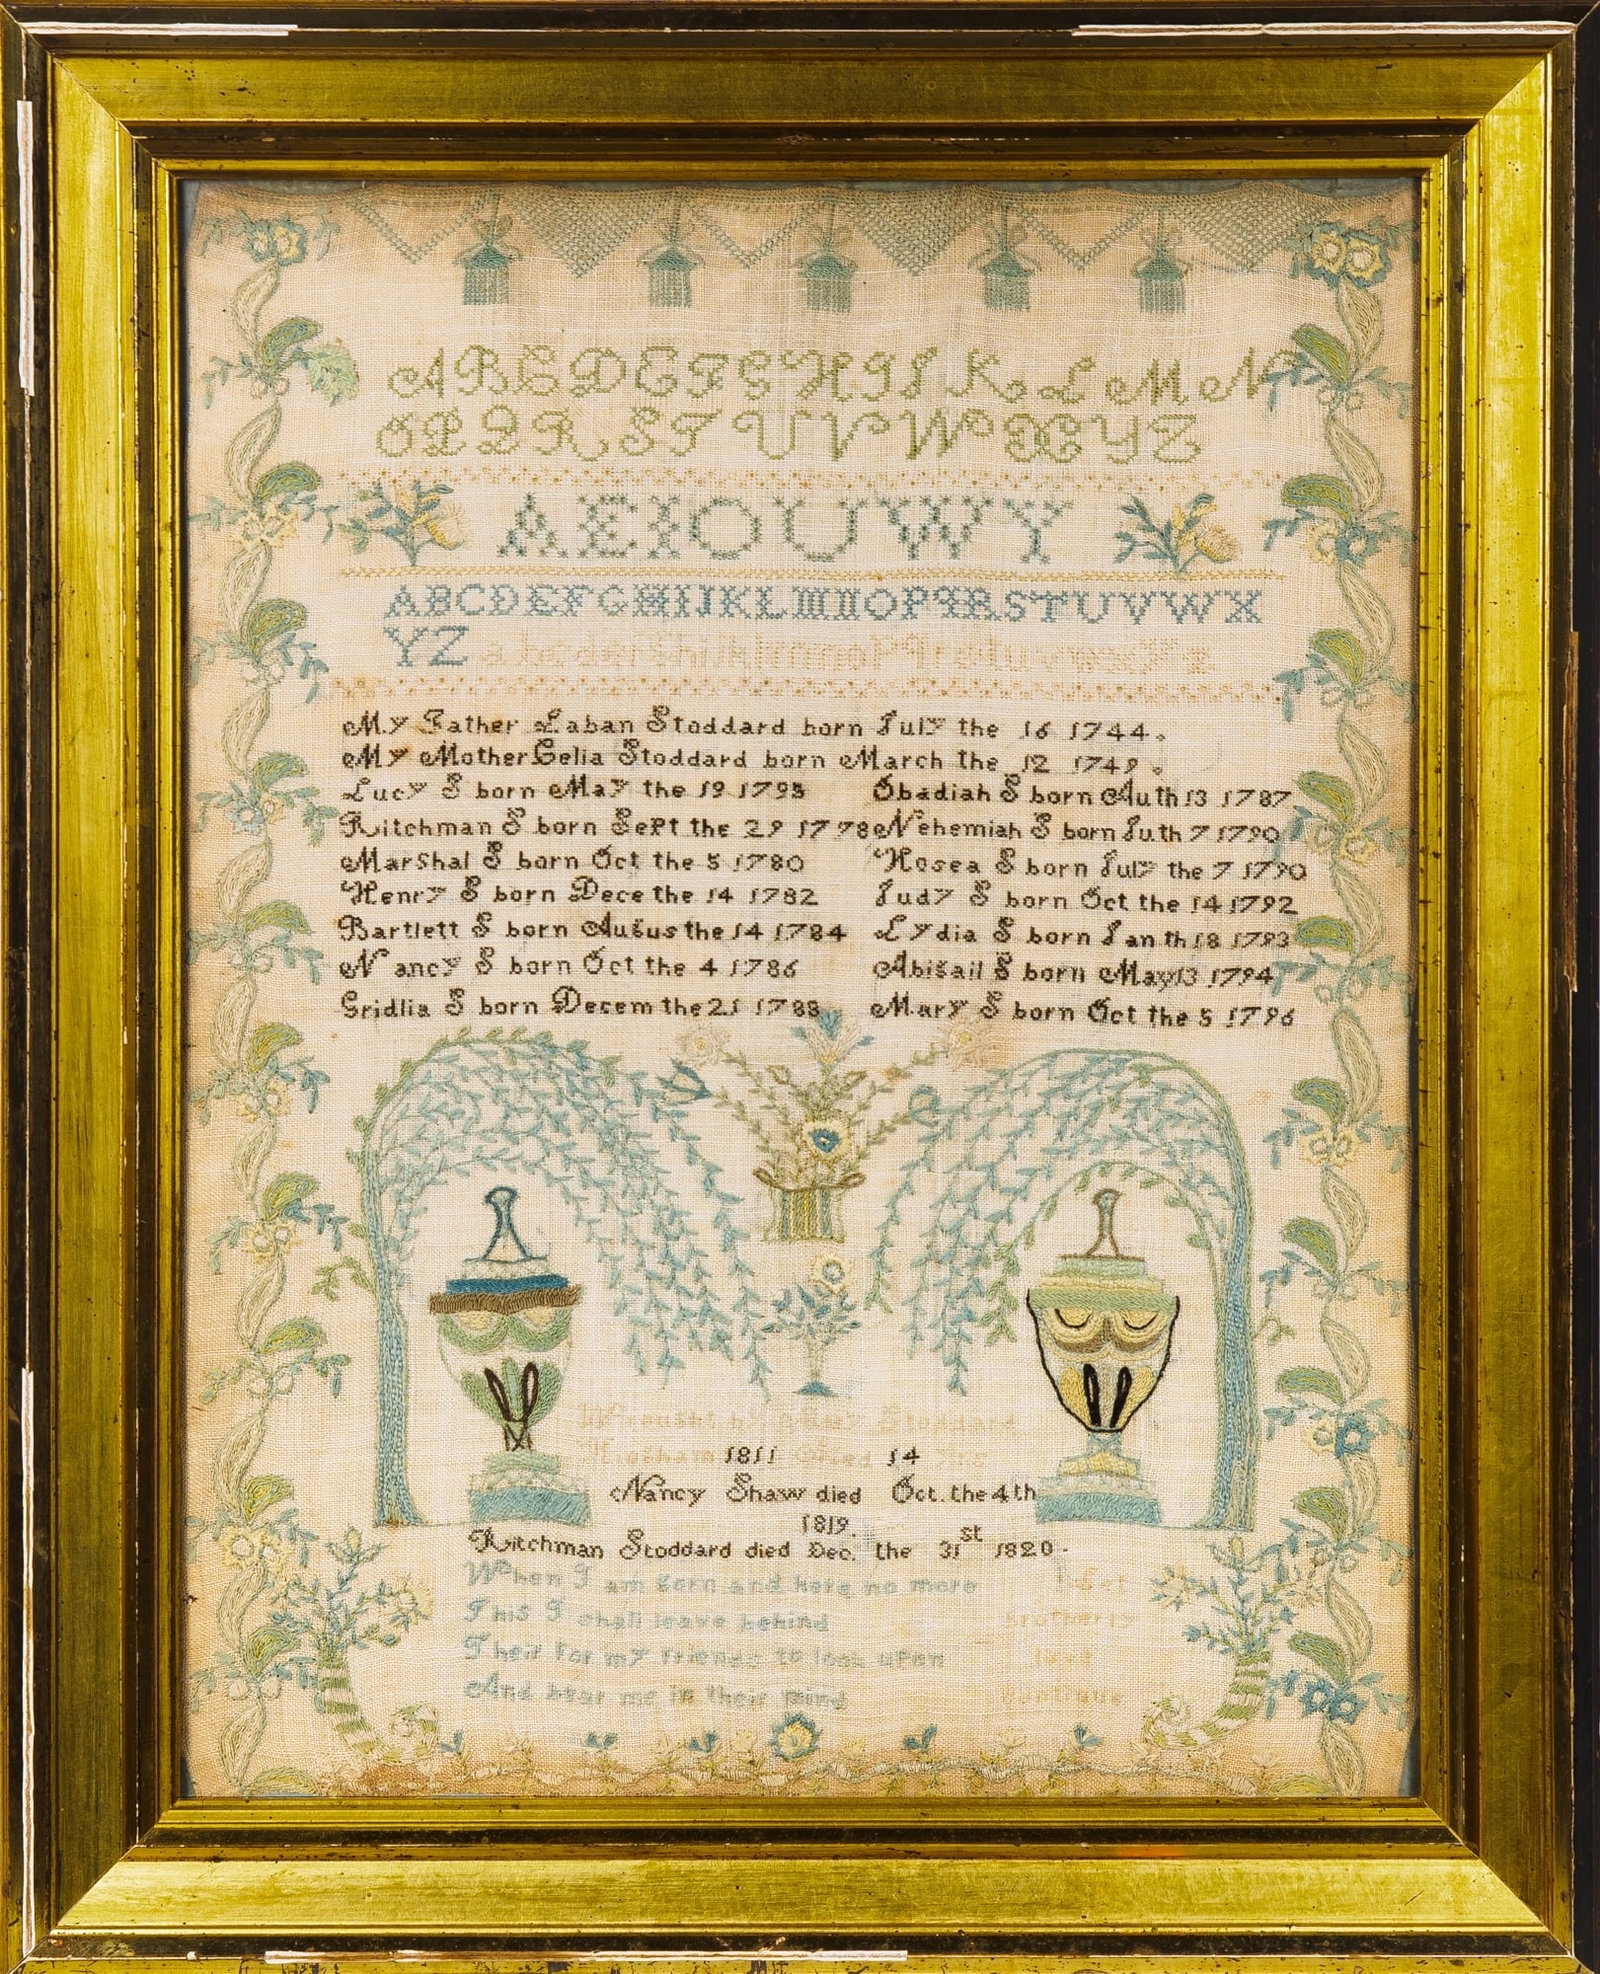 A B C D E F G H I J K L M N
O P Q R S T U V W X Y Z
A E I O U W Y
A B C D E F G H I J K L M N O P Q R S T U V W X
Y Z
My Father Laban Stoddard born July the 16 1744.
My Mother Celia Stoddard born March the 12 1749.
Lucy S born May the 19 1795
Ritchman S born Sept the 29 1778
Marshal S born Oct the 5 1780
Henry S born Dece the 14 1782
Bartlett S born Augus the 14 1784
Nancy S born Oct the 4 1786
Gridlia S born Decem the 21 1788
Obadiah S born Au th 13 1787
Nehemiah S born Ju th 7 1790
Hosea S born July the 7 1790
Judy S born Oct the 14 1792
Lydia S born Jan th 18 1793
Abigail S born May 13 1794
Mary S born Oct the 5 1796
Stoddard
1811 14
Nancy Shaw died Oct. the 4th
1819.
Ritchman Stoddard died Dec. the 31st 1820.
When I am and here no more
This I shall leave behind
for my friends to look upon
And bear me in their mind
Let
Brotherly
love
continue